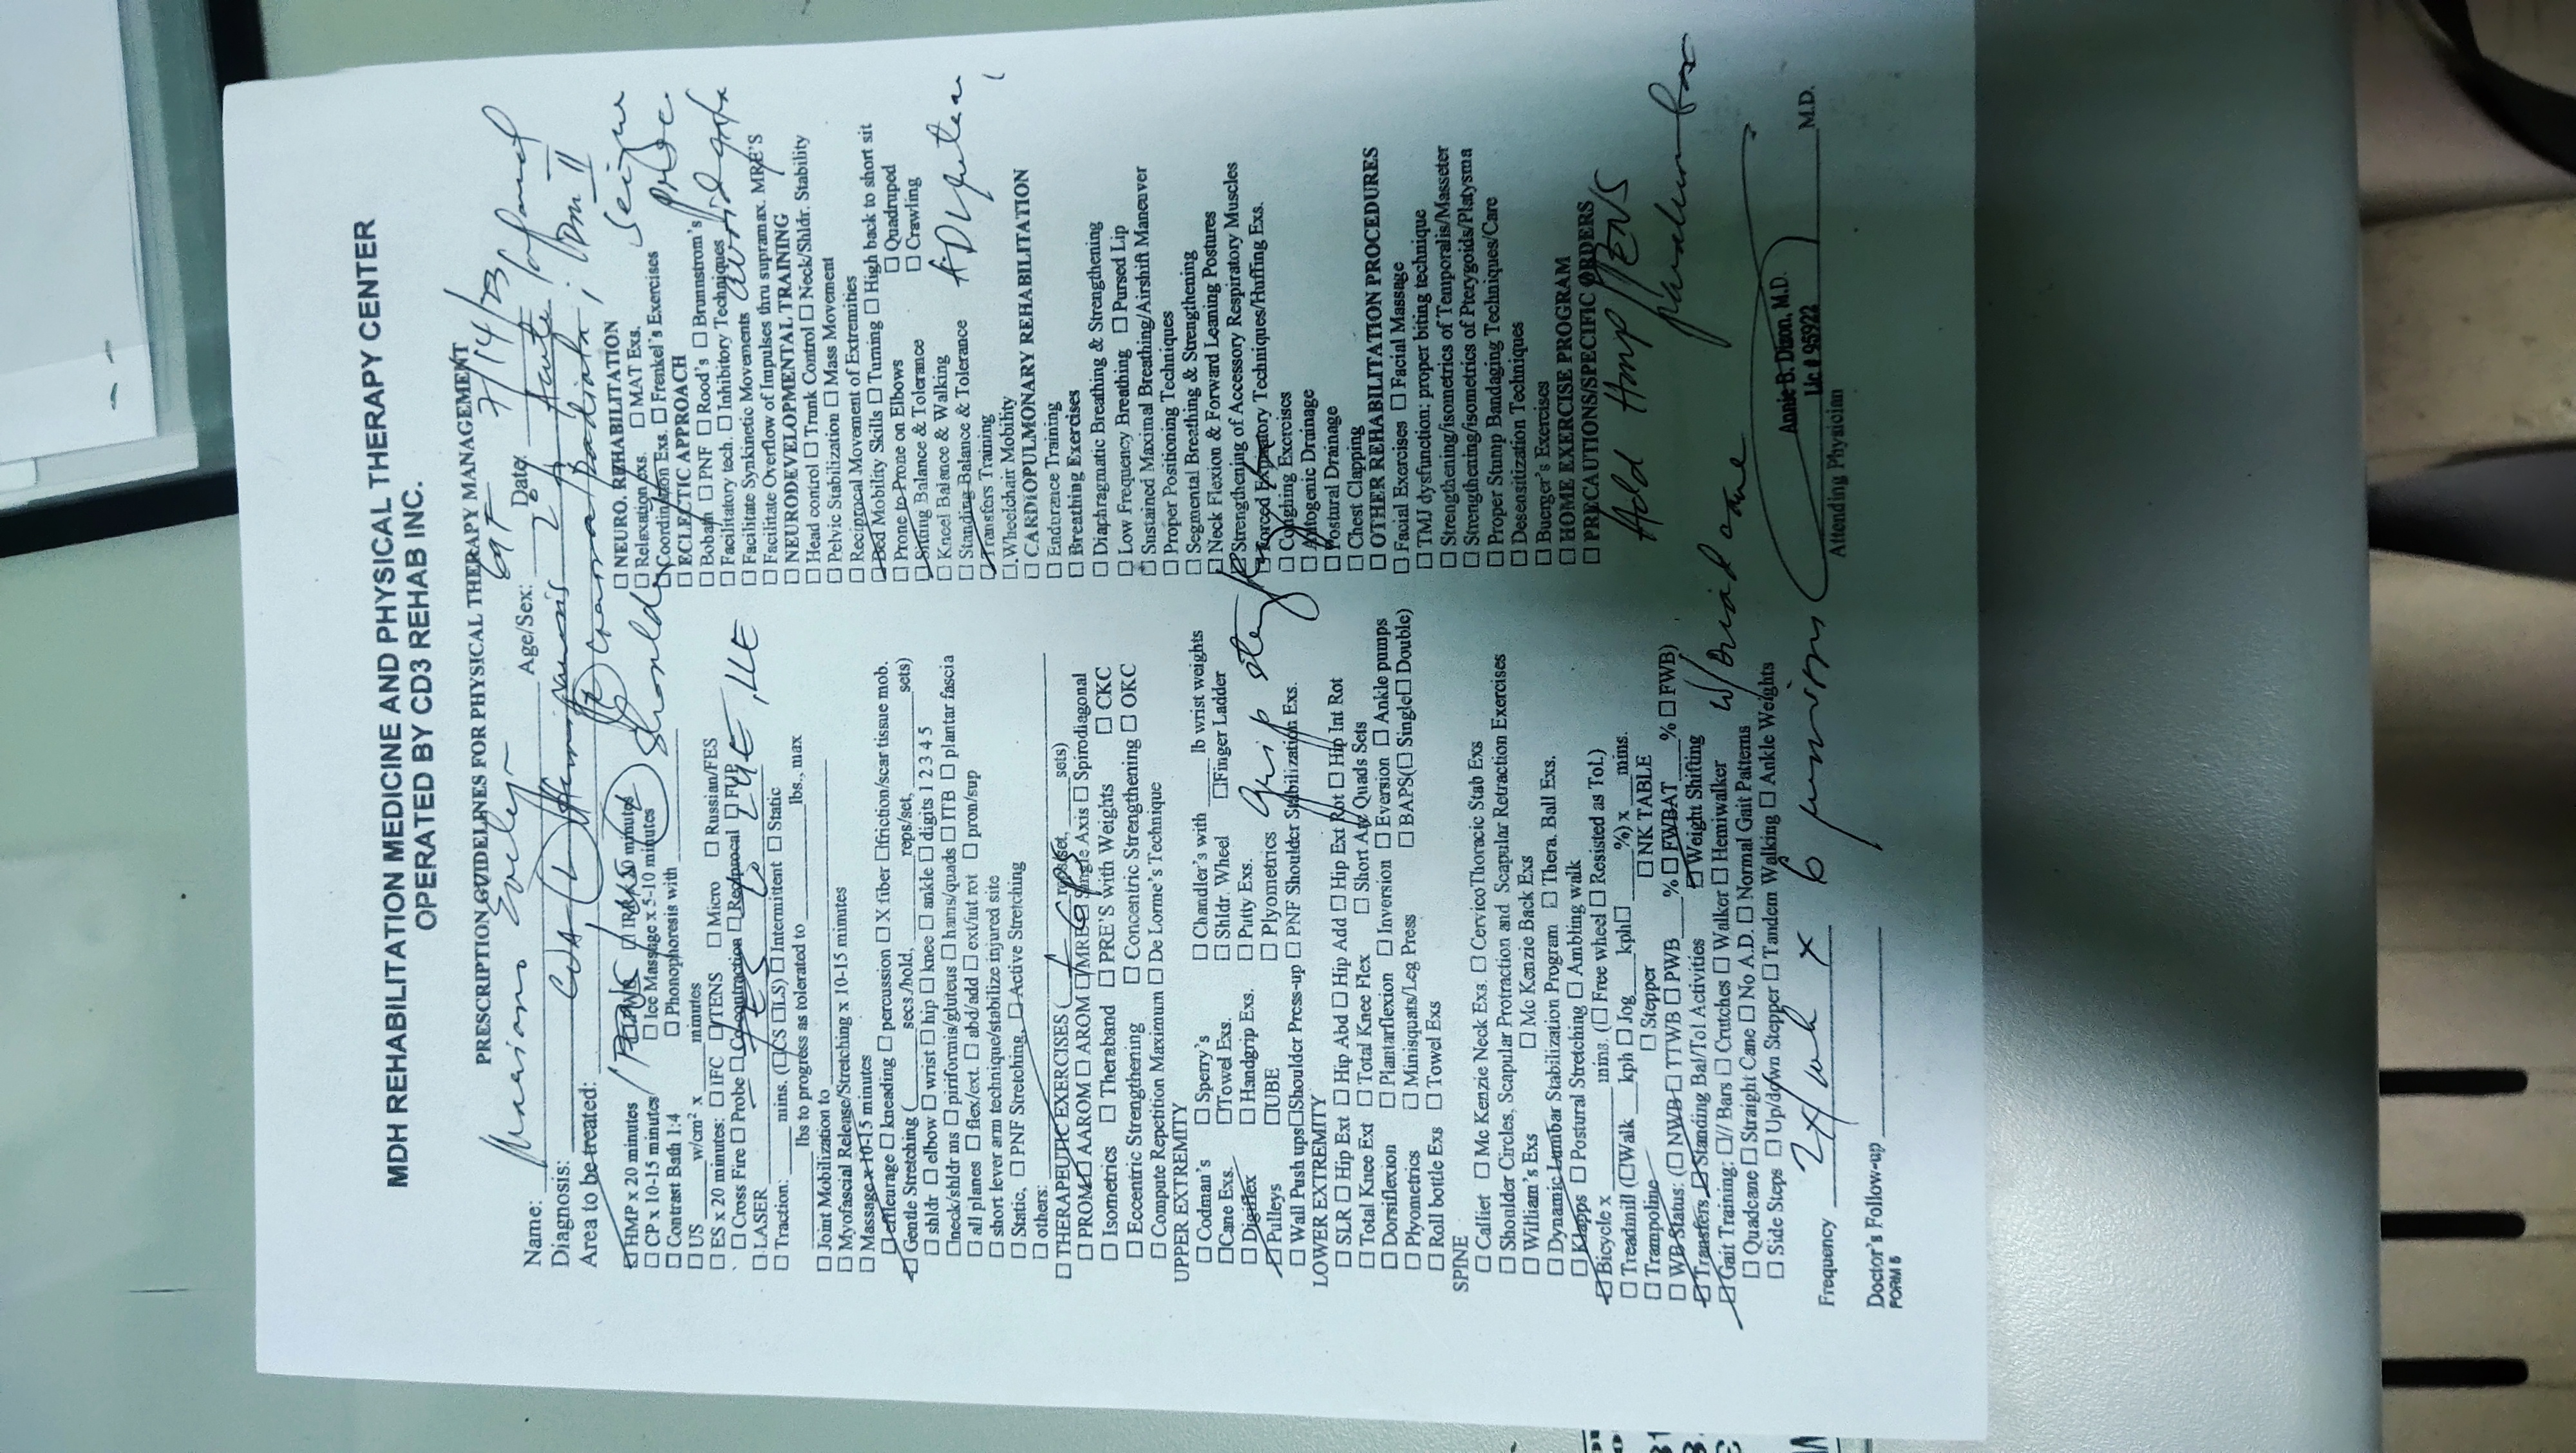 MDH REHABILITATION MEDICINE AND PHYSICAL THERAPY CENTER
OPERATED BY CD3 REHAB INC.
PRESCRIPTION GUIDELINES FOR PHYSICAL THERAPY MANAGEMENT
Name: Mariano Evelyn Age/Sex: 69F Date: 7/14/23
Diagnosis: CVA, (L) Hemiparesis 2° Acute Infarct
Area to be treated: (R) corona radiata; DM II
☐ HMP x 20 minutes ☐ PWB ☐ IRR x 20 minutes (L) shoulder
☐ CP x 10-15 minutes ☐ Ice Massage x 5-10 minutes
☐ Contrast Bath 1:4 ☐ Phonophoresis with
☐ US w/cm² x minutes
☐ ES x 20 minutes: ☐ IFC ☐ TENS ☐ Micro ☐ Russian/FES
☐ Cross Fire ☐ Probe ☐ Co-contraction ☐ Reciprocal ☐ FUP
☐ LASER FES to LUE, LLE
☐ Traction: mins. (☐CS ☐LS) ☐ Intermittent ☐ Static
lbs to progress as tolerated to lbs., max
☐ Joint Mobilization to
☐ Myofascial Release/Stretching x 10-15 minutes
☐ Massage x 10-15 minutes
☐ effleurage ☐ kneading ☐ percussion ☐ X fiber ☐friction/scar tissue mob.
☐ Gentle Stretching ( secs./hold, reps/set, sets)
☐ shldr ☐ elbow ☐ wrist ☐ hip ☐ knee ☐ ankle ☐ digits 1 2 3 4 5
☐neck/shldr ms ☐ piriformis/gluteus ☐ hams/quads ☐ ITB ☐ plantar fascia
☐ all planes ☐ flex/ext. ☐ abd/add ☐ ext/int rot ☐ pron/sup
☐ short lever arm technique/stabilize injured site
☐ Static, ☐ PNF Stretching, ☐ Active Stretching
☐ others:
☐ THERAPEUTIC EXERCISES ( reps/set, sets)
☐ PROM ☐ AAROM ☐ AROM ☐ MRE ☐ Single Axis ☐ Spirodiagonal
☐ Isometrics ☐ Theraband ☐ PRE'S with Weights ☐ CKC
☐ Eccentric Strengthening ☐ Concentric Strengthening ☐ OKC
☐ Compute Repetition Maximum ☐ De Lorme's Technique
UPPER EXTREMITY
☐ Codman's ☐ Sperry's ☐ Chandler's with lb wrist weights
☐Cane Exs. ☐Towel Exs. ☐ Shldr. Wheel ☐Finger Ladder
☐ Digiflex ☐ Handgrip Exs. ☐ Putty Exs.
☐ Pulleys ☐UBE ☐ Plyometrics grip
☐ Wall Push ups☐Shoulder Press-up ☐ PNF Shoulder Stabilization Exs.
LOWER EXTREMITY
☐ SLR ☐ Hip Ext ☐ Hip Abd ☐ Hip Add ☐ Hip Ext Rot ☐ Hip Int Rot
☐ Total Knee Ext ☐ Total Knee Flex ☐ Short Arc Quads Sets
☐ Dorsiflexion ☐ Plantarflexion ☐ Inversion ☐ Eversion ☐ Ankle pumps
☐ Plyometrics ☐ Minisquats/Leg Press ☐ BAPS(☐ Single☐ Double)
☐ Roll bottle Exs ☐ Towel Exs
SPINE
☐ Calliet ☐ Mc Kenzie Neck Exs. ☐ CervicoThoracic Stab Exs
☐ Shoulder Circles, Scapular Protraction and Scapular Retraction Exercises
☐ William's Exs ☐ Mc Kenzie Back Exs
☐ Dynamic Lumbar Stabilization Program ☐ Thera. Ball Exs.
☐ Klapps ☐ Postural Stretching ☐ Ambling walk
☐ Bicycle x mins. (☐ Free wheel ☐ Resisted as Tol.)
☐ Treadmill (☐Walk kph ☐ Jog kph☐ %) x mins.
☐ Trampoline ☐ Stepper ☐ NK TABLE
☐ WB Status: (☐ NWB ☐ TTWB ☐ PWB % ☐ FWBAT % ☐ FWB)
☐ Transfers ☐ Standing Bal/Tol Activities ☐ Weight Shifting
☐ Gait Training: ☐// Bars ☐ Crutches ☐ Walker ☐ Hemiwalker w/ quad cane
☐ Quadcane ☐ Straight Cane ☐ No A.D. ☐ Normal Gait Patterns
☐ Side Steps ☐ Up/down Stepper ☐ Tandem Walking ☐ Ankle Weights
☐ NEURO. REHABILITATION
☐ Relaxation exs. ☐ MAT Exs. Seizure
☐ Coordination Exs. ☐ Frenkel's Exercises prec.
☐ ECLECTIC APPROACH
☐ Bobath ☐ PNF ☐ Rood's ☐ Brunnstrom's
☐ Facilitatory tech. ☐ Inhibitory Techniques avoid
☐ Facilitate Synkinetic Movements
☐ Facilitate Overflow of Impulses thru supramax. MRE'S
☐ NEURODEVELOPMENTAL TRAINING
☐ Head control ☐ Trunk Control ☐ Neck/Shldr. Stability
☐ Pelvic Stabilization ☐ Mass Movement
☐ Reciprocal Movement of Extremities
☐ Bed Mobility Skills ☐ Turning ☐ High back to short sit
☐ Prone to Prone on Elbows ☐ Quadruped
☐ Sitting Balance & Tolerance ☐ Crawling
☐ Kneel Balance & Walking
☐ Standing Balance & Tolerance
☐ Transfers Training
☐ Wheelchair Mobility
☐ CARDIOPULMONARY REHABILITATION
☐ Endurance Training
☐ Breathing Exercises
☐ Diaphragmatic Breathing & Strengthening
☐ Low Frequency Breathing ☐ Pursed Lip
☐ Sustained Maximal Breathing/Airshift Maneuver
☐ Proper Positioning Techniques
☐ Segmental Breathing & Strengthening
☐ Neck Flexion & Forward Leaning Postures
☐ Strengthening of Accessory Respiratory Muscles
☐ Forced Expiratory Techniques/Huffing Exs.
☐ Coughing Exercises
☐ Autogenic Drainage
☐ Postural Drainage
☐ Chest Clapping
☐ OTHER REHABILITATION PROCEDURES
☐ Facial Exercises ☐ Facial Massage
☐ TMJ dysfunction: proper biting technique
☐ Strengthening/isometrics of Temporalis/Masseter
☐ Strengthening/isometrics of Pterygoids/Platysma
☐ Proper Stump Bandaging Techniques/Care
☐ Desensitization Techniques
☐ Buerger's Exercises
☐ HOME EXERCISE PROGRAM
☐ PRECAUTIONS/SPECIFIC ORDERS
Add HMP/TENS
Frequency 2x/wk x 6
Annie B. Dizon, M.D.
Lic # 95922 M.D.
Attending Physician
Doctor's Follow-up
FORM 5